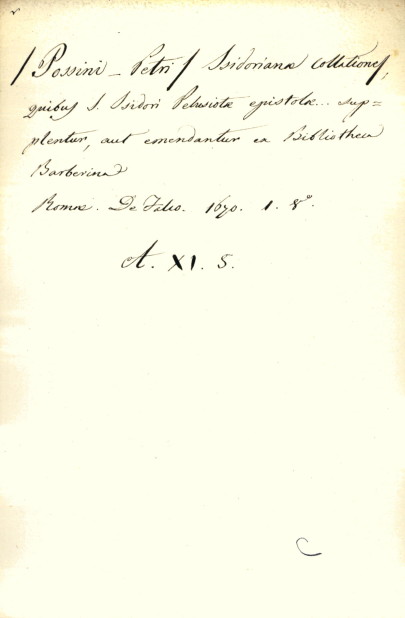 / Possini - Petri / Isidorianæ Collationes,
quibus S. Isidori Pelusiotæ epistolæ... sup=
plentur, aut emendantur ex Bibliotheca
Barberina
Romæ. De Falco. 1670. 1. 8º.
A. XI. 5.
C